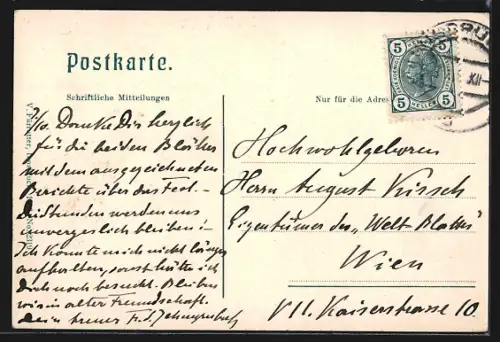 Postkarte.
Schriftliche Mitteilungen
Nur für die Adres
5 5
HELLER
5 5
XII
Danke Dir herzlich
für die beiden Blätter
mit dem ausgezeichneten
Berichte über das Fest.
Die Stunden werden uns
unvergeslich bleiben!
Ich konnte mich nicht länger
aufhalten, sonst hätte ich
Dich noch besucht. Bleiben
wir in alter Freundschaft.
Dein treuer
Hochwohlgeboren
Herrn August Kirsch
Eigentümer des "Welt Blattes"
Wien
VII. Kaiserstrasse 10